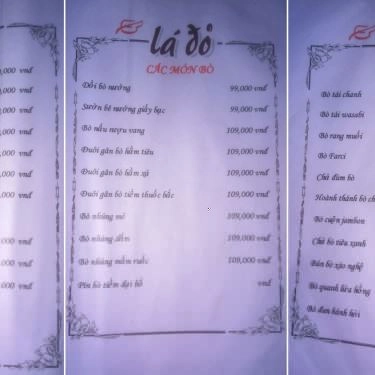 ,000 vnđ
,000 vnđ
,000 vnđ
,000 vnđ
,000 vnđ
,000 vnđ
,000 vnđ
vnđ
vnđ
vnđ
lá đỏ
CÁC MÓN BÒ
Dồi bò nướng 99,000 vnđ
Sườn bê nướng giấy bạc 99,000 vnđ
Bò nấu rượu vang 109,000 vnđ
Đuôi gân bò hầm tiêu 109,000 vnđ
Đuôi gân bò hầm xả 109,000 vnđ
Đuôi gân bò tiềm thuốc bắc 109,000 vnđ
Bò nhúng mẻ 109,000 vnđ
Bò nhúng dấm 109,000 vnđ
Bò nhúng mắm ruốc 109,000 vnđ
Pín bò tiềm đại bổ vnđ
Bò tái chanh
Bò tái wasabi
Bò rang muối
Bò Farci
Chả đùm bò
Hoành thánh bò ch
Bò cuộn jambon
Chả bò tiêu xanh
Bún bò xào nghệ
Bò quanh lửa hồng
Bò đun bánh hỏi